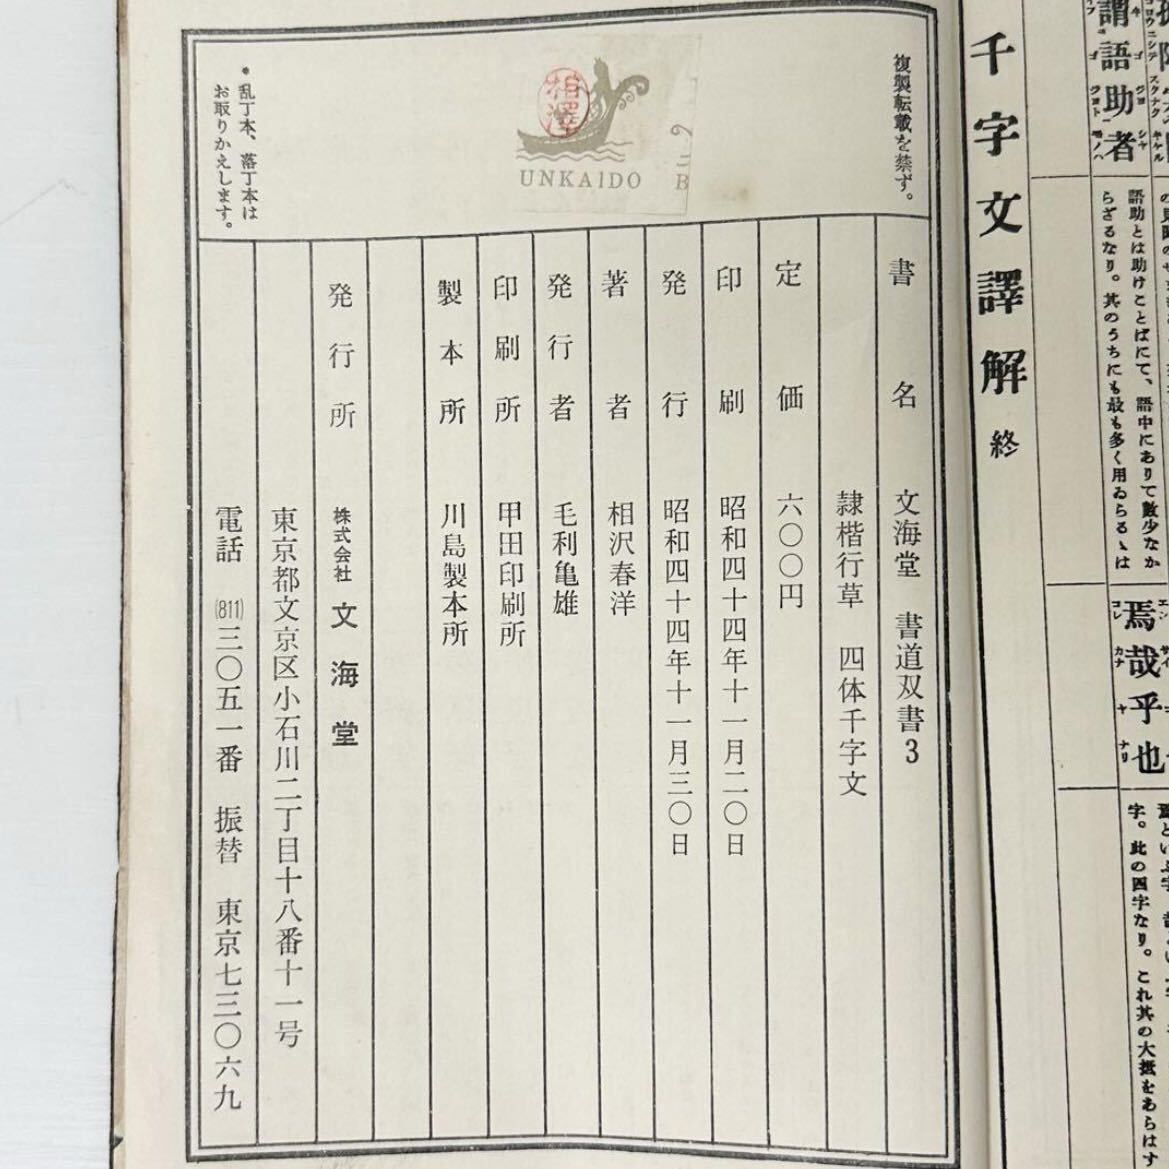 謂語助者
語助とは助けことばにて、語中にありて數少なか
らざるなり。其のうちにも最も多く用ゐらるゝは
焉哉乎也
字。此の四字なり。これ其の大抵をあらはす
千字文譯解 終
複製転載を禁ず。
相澤
UNKAIDO
・乱丁本、落丁本は
お取りかえします。
書名 文海堂 書道双書3
隷楷行草 四体千字文
定価 六〇〇円
印刷 昭和四十四年十一月二〇日
発行 昭和四十四年十一月三〇日
著者 相沢春洋
発行者 毛利亀雄
印刷所 甲田印刷所
製本所 川島製本所
発行所 株式会社 文海堂
東京都文京区小石川二丁目十八番十一号
電話 (811)三〇五一番 振替 東京七三〇六九